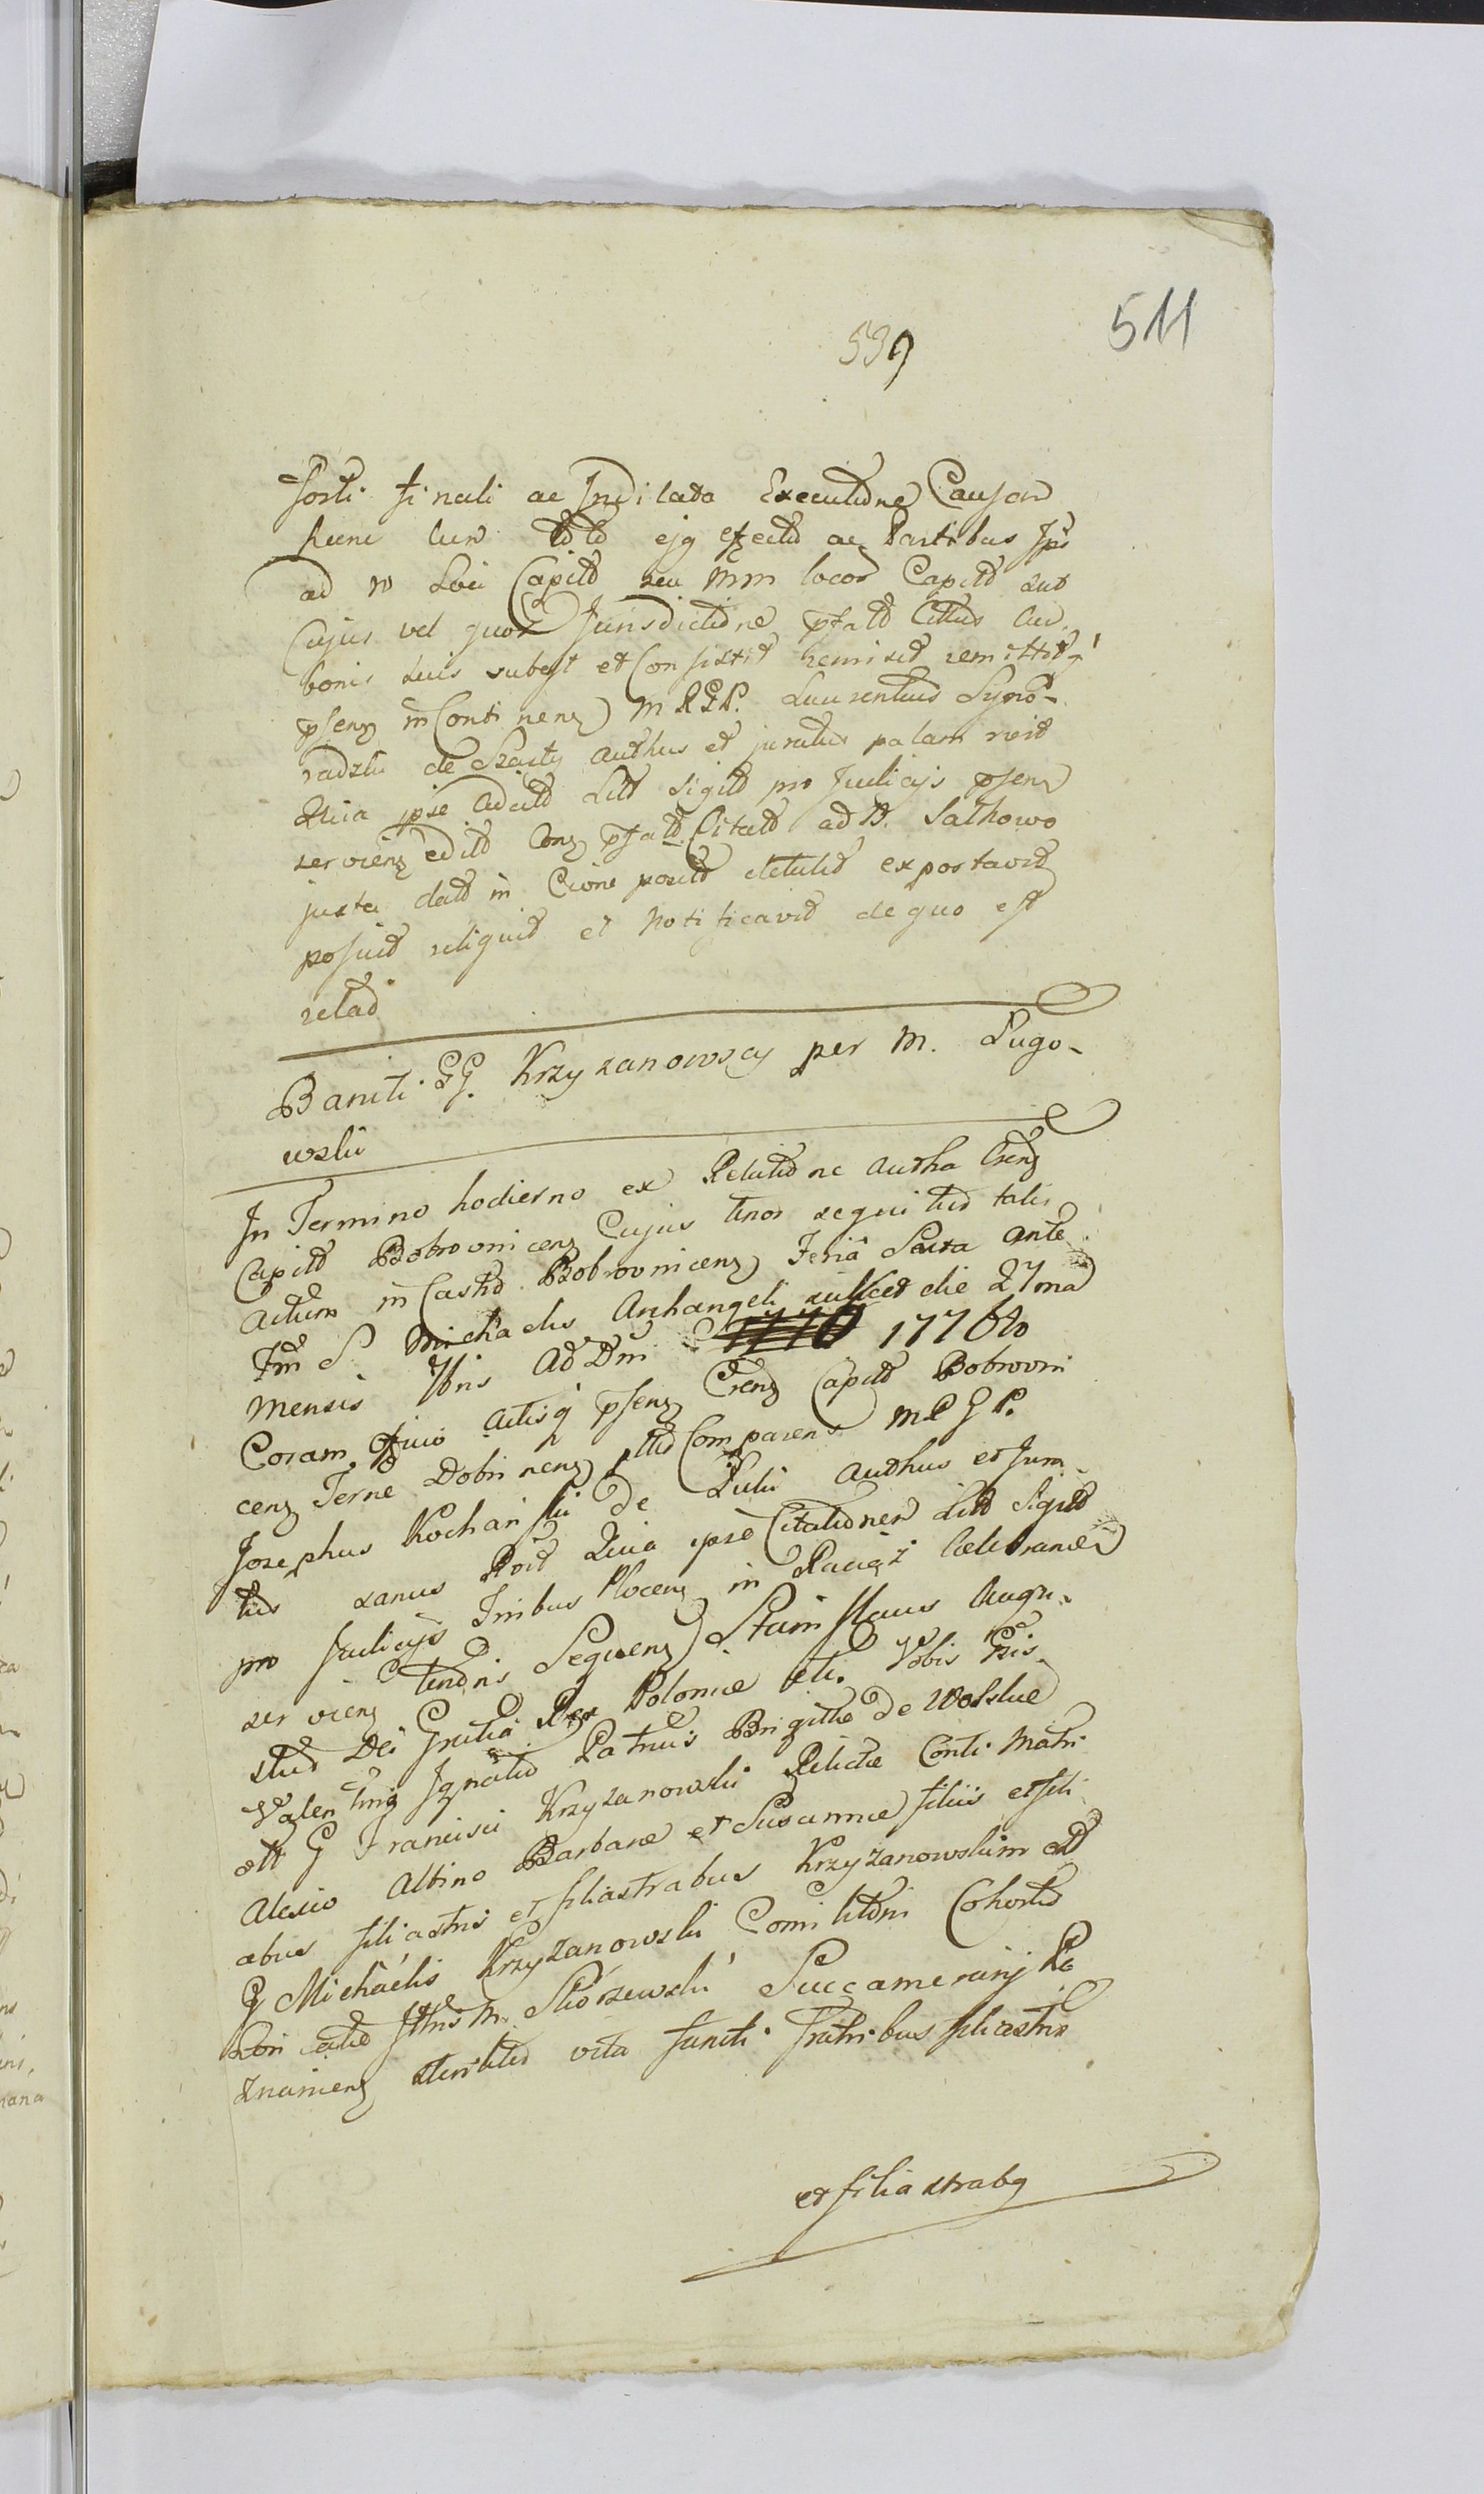 511
539
forti finali ac Indilata Executione Causam
hanc cum toto ejg effectu ac Partibus Ips
ad N Loci Capitd seu Mm locor Capitd sub
Cujus vel quor Jurisdictione pfatd Cittus cum
bonis suis subest et Consistit remisit remittitq
psenz in Continenz MRGP. Laurentius Syno-
radzki de Szasty authus et juratus palam rcit
Quia ipse Adcitd Litt sigitd pro Judicijs psenz
servienz editd Conz pfatd Citatd ad B. Sathowo
juxta datd in Cione positd detulit exportavit
posuit reliquit et Notificavit de quo est
relad
Baniti GG. Krzyzanowscy per M. Lugo-
wski
In Termino hodierno ex Relatione autha Crenz
Capitd Bobrovnicenz Cujus tenor sequitur talis
Actum in Castro Bobrovnicenz Feria Sexta ante
Fm S. Michaelis Archangeli scilicet die 27ma
Mensis 7bris Ad Dni 1776to
Coram Offcio Actisq psenz Crenz Capitd Bobrovni
cenz Terrae Dobrinenz Comparens MRGP.
Josephus Kochanski de Authus et Jura-
tus sanus Rcit Quia ipse Citationem Litt Sigitd
pro Judicijs Tribus Plocenz in Raciąż Celebrandis
servienz tenoris Sequenz Stanislaus Augu-
stus Dei Gratia Rex Poloniae etc. Vobis Gsis
Valenting Ignatio Patruis Brigittae de Wolskie
olt G Francisci Krzyzanowski Relictae Conti Matri
Alexio Albino Barbarae et Susannae filiis et fili
abus filiastris et filiastrabus Krzyzanowskim olt
G Michaelis Krzyzanowski Comilitoni Cohortis
Loricatae Ittris M. Skórzewski Succamerarij Po
znanienz steriliter vita functi fratribus filiastris
et filiastrabq